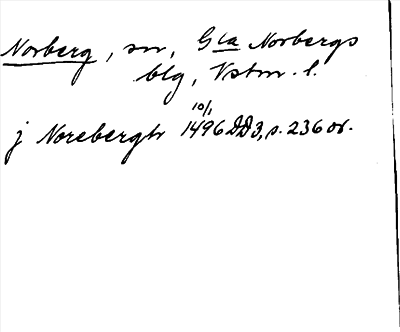 Norberg, sn, Gla Norbergs
blg, Vstm. l.
10/1
j Norebergh 1496 DD3, s. 236 or.